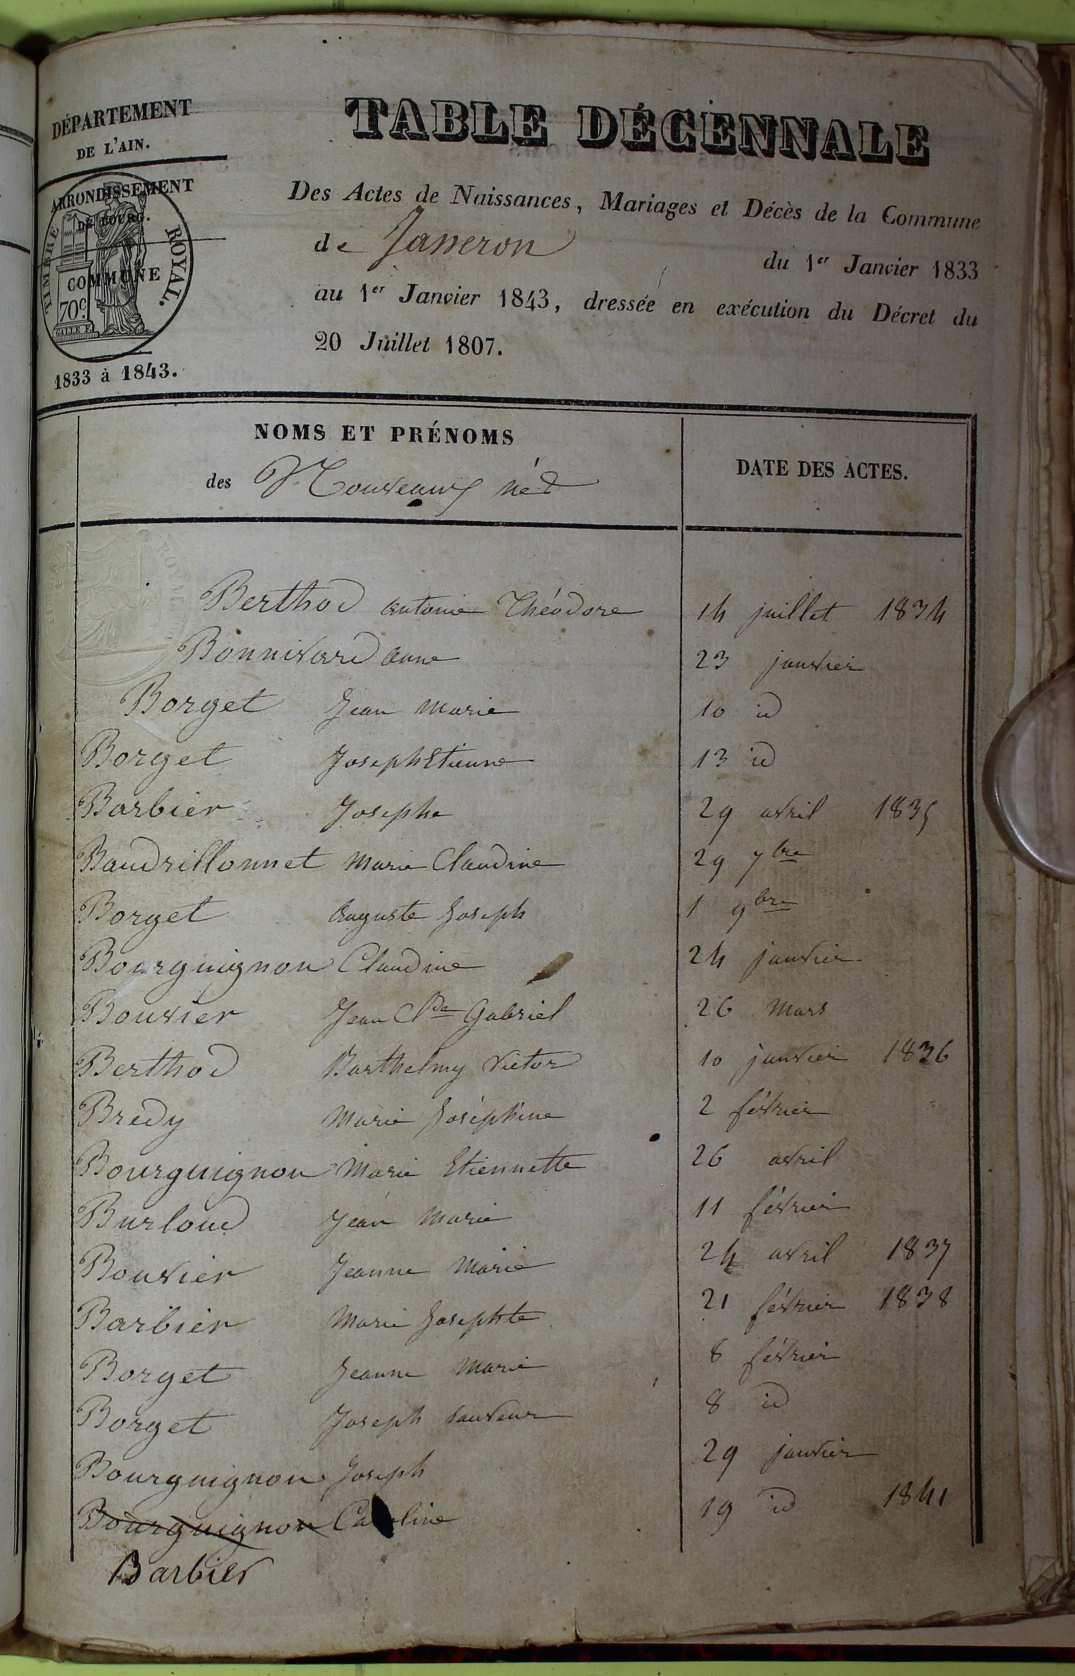 DÉPARTEMENT
DE L'AIN.
ARRONDISSEMENT
DE BOURG.
COMMUNE
TIMBRE ROYAL.
70c
1833 à 1843.
TABLE DÉCENNALE
Des Actes de Naissances, Mariages et Décès de la Commune
de Jasseron du 1er Janvier 1833
au 1er Janvier 1843, dressée en exécution du Décret du
20 Juillet 1807.
NOMS ET PRÉNOMS
des Nouveaux nés
DATE DES ACTES.
Berthod antonie Théodore 14 juillet 1834
Bonnivard anne 23 janvier
Borget Jean Marie 10 id
Borget Joseph Etienne 13 id
Barbier Josephe 29 avril 1835
Baudrillonnet Marie Claudine 29 7bre
Borget Auguste Joseph 1 9bre
Bourguignon Claudine 24 janvier
Bouvier Jean Cde Gabriel 26 Mars
Berthod Barthelmy Victor 10 janvier 1836
Bredy Marie Joséphine 2 février
Bourguignon Marie Etiennette 26 avril
Burloud Jean Marie 11 février
Bouvier Jeanne Marie 24 avril 1837
Barbier Marie Josephte 21 février 1838
Borget Jeanne Marie 8 février
Borget Joseph Sauveur 8 id
Bourguignon Joseph 29 janvier
Bourguignon Caroline 19 id 1841
Barbier